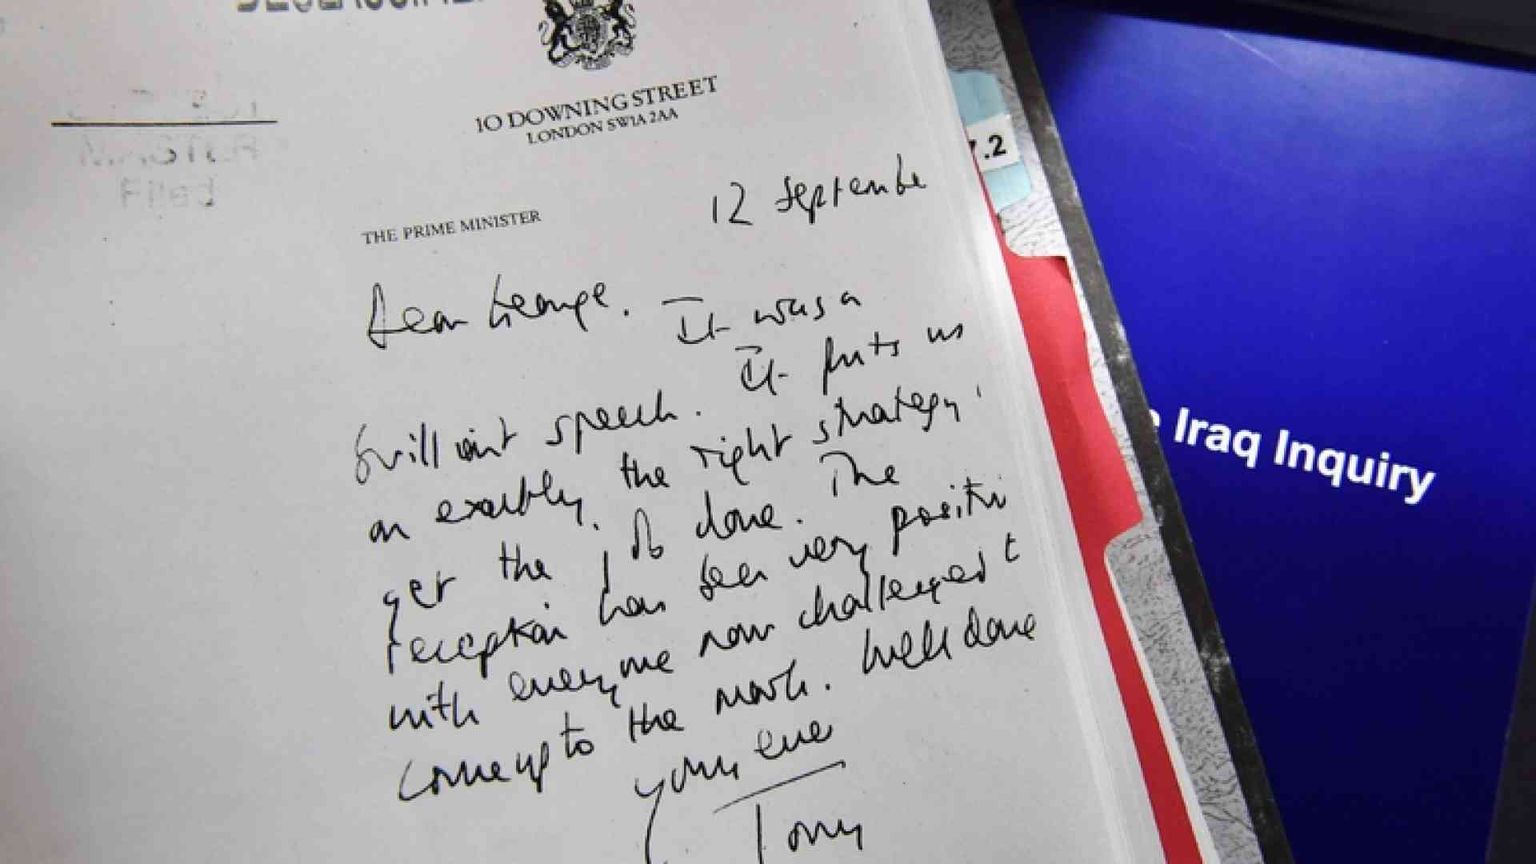 DECLASSIFIED
10 DOWNING STREET
LONDON SW1A 2AA
THE PRIME MINISTER
12 September
Dear George. It was a
brilliant speech. It puts us
on exactly the right strategy
get the job done. The
reception has been very positive
with everyone now challenged t
come up to the mark. Well done
Yours ever
Tony
7.2
Iraq Inquiry
Filed